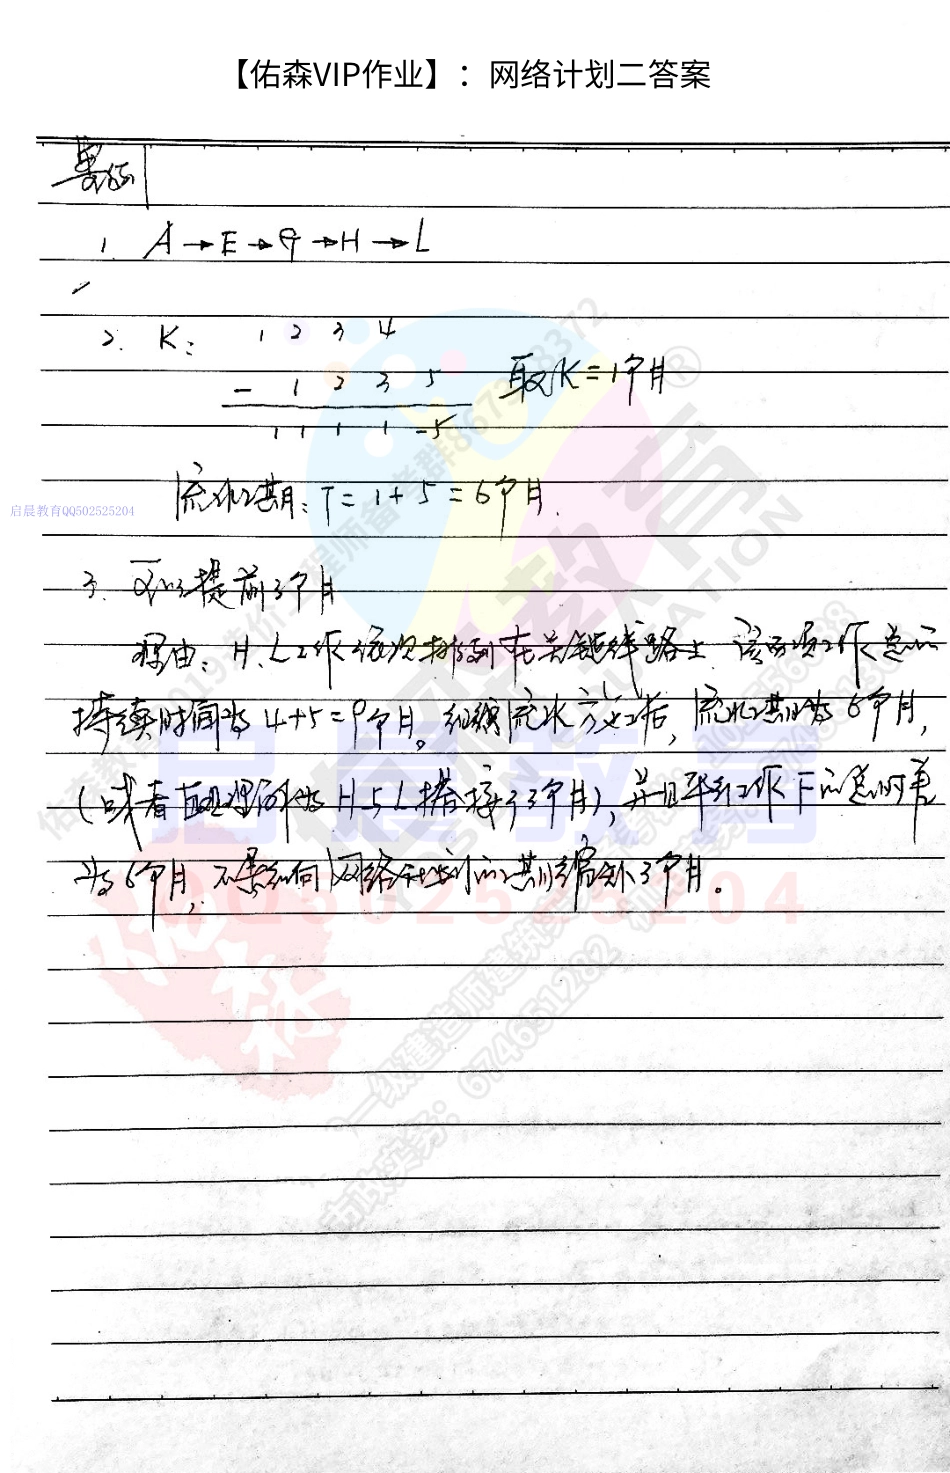 【佑森VIP作业】：网络计划二答案
案例
1. A→E→G→H→L
2. K: 1 2 3 4
- 1 2 3 5
1 1 1 1 -5
取K=1个月
流水工期: T=1+5=6个月.
启晨教育QQ502525204
3. 可以提前3个月
理由: H、L工作依次排列在关键线路上, 该两项工作总的
持续时间为4+5=9个月。组织流水方式后, 流水工期为6个月,
(或者直接理解为H与L搭接了3个月), 并且平行工作F的总时差
为6个月,
网络计划的工期缩短3个月。
启晨教育
QQ502525204
佑森教育
YOSEN EDUCATION
®
佑森